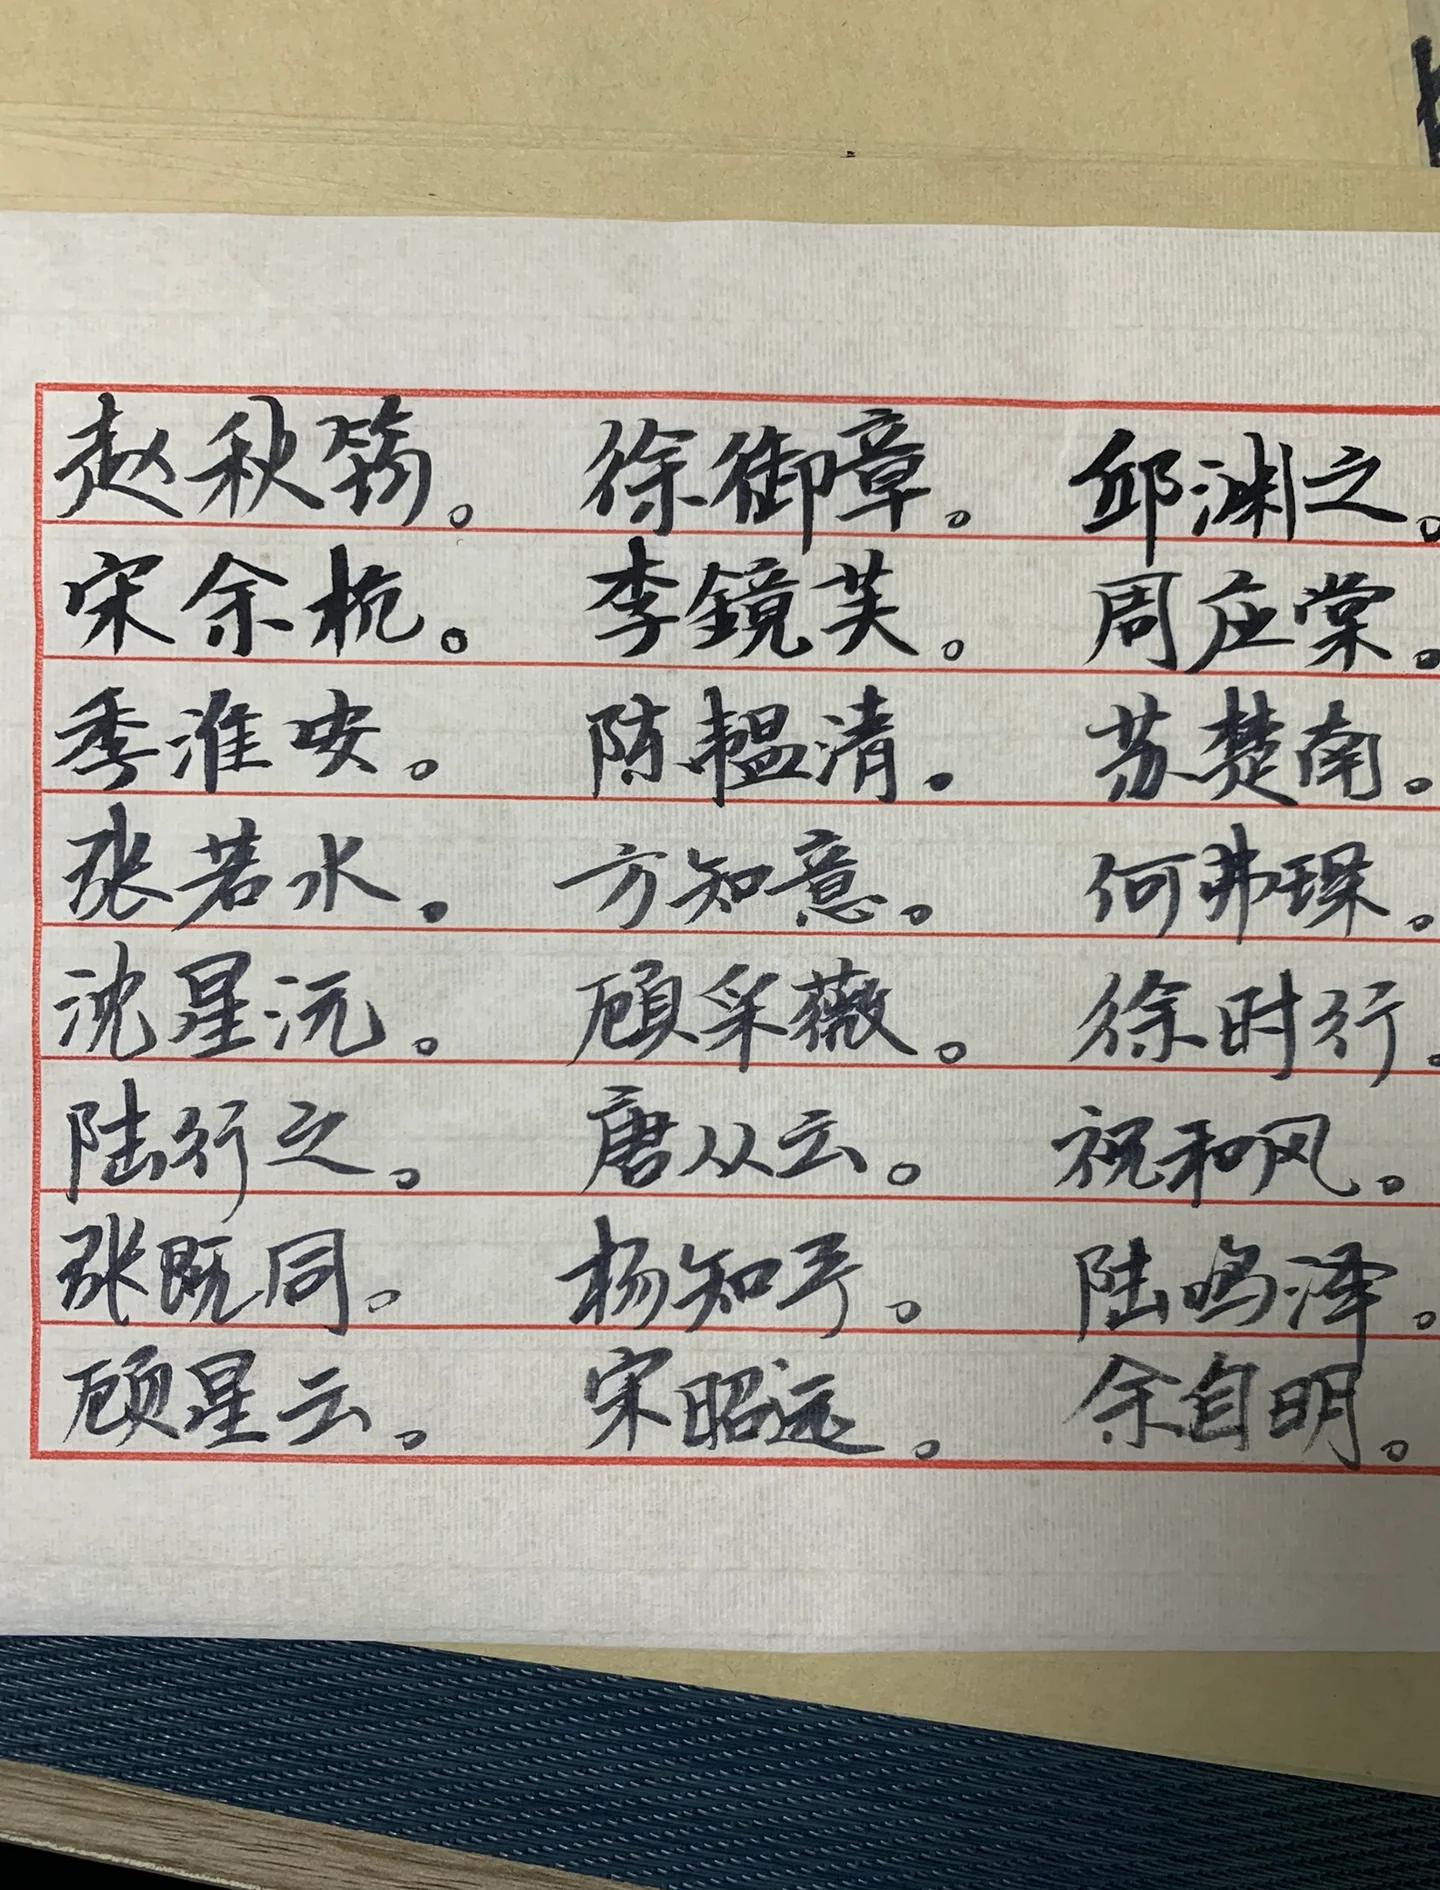 赵秋筠。 徐御章。 邱渊之。
宋余杭。 李鏡芙。 周应棠。
季淮安。 陈韫清。 苏楚南。
张若水。 方知意。 何弗琛。
沈星沅。 顾采薇。 徐时行。
陆行之。 唐从云。 祝和风。
张既同。 杨知予。 陆鸣泽。
顾星云。 宋昭远。 余自明。